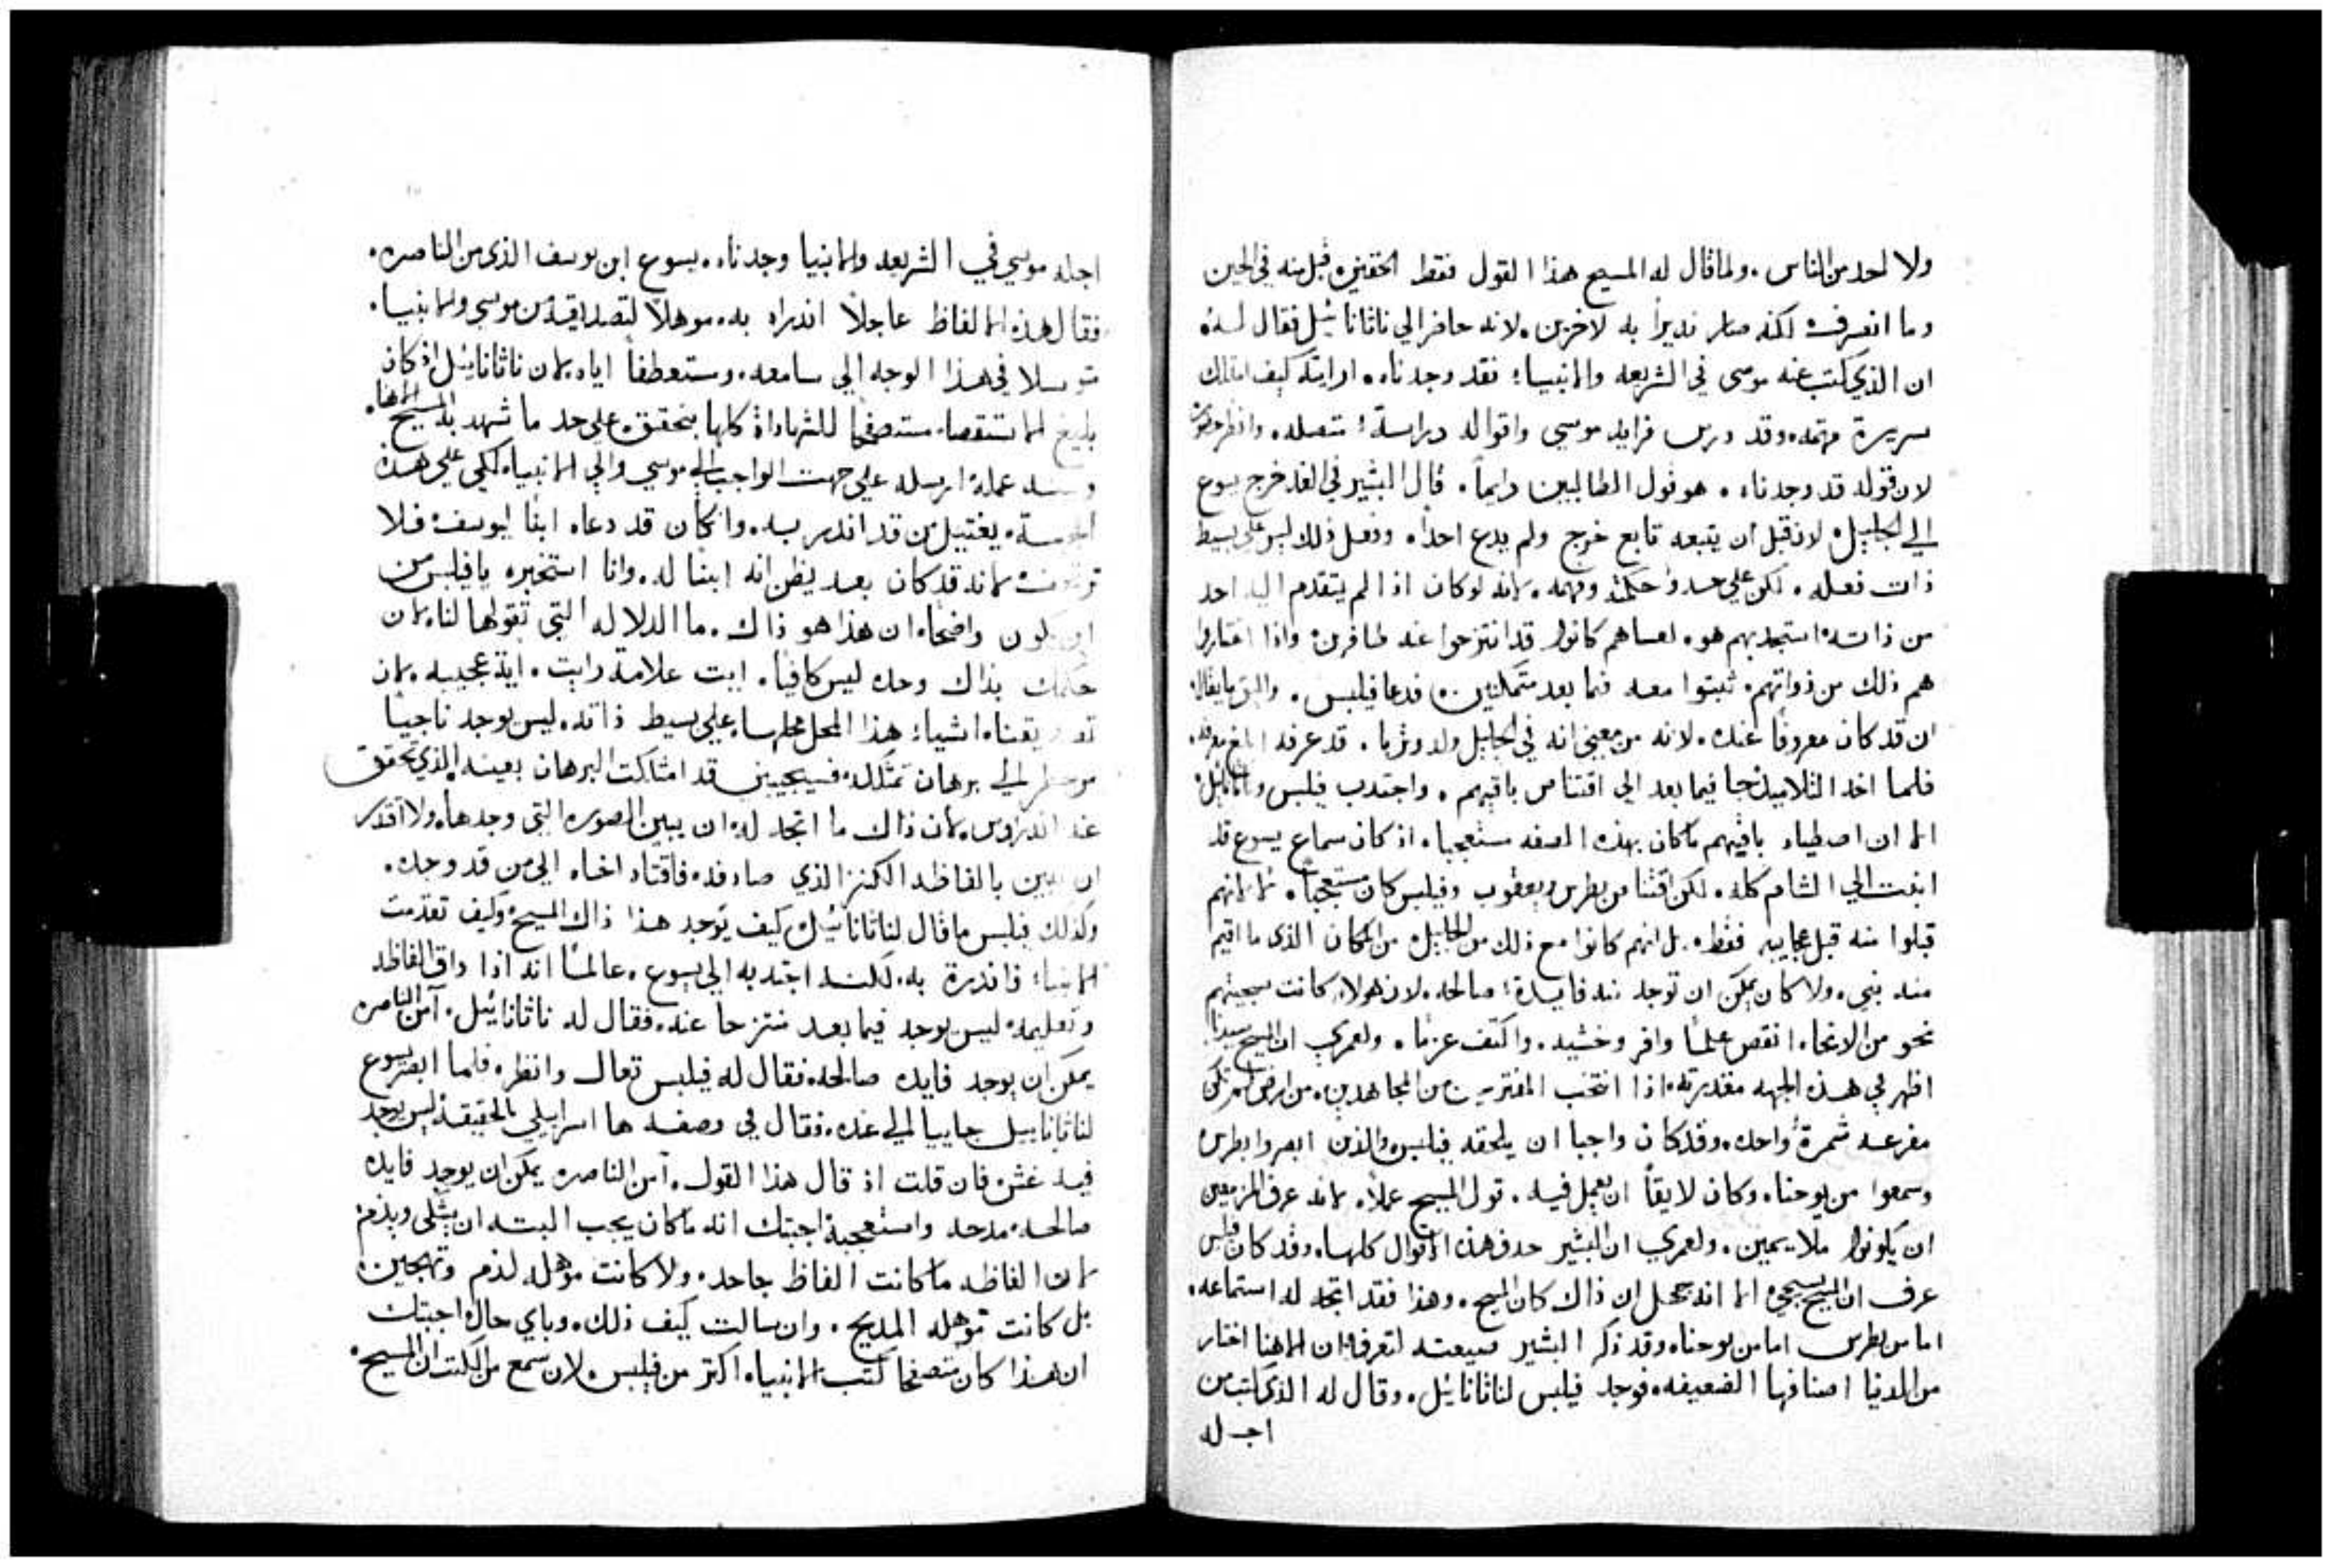 ولا لاحد من الناس. ولما قال له المسيح هذا القول فقط اتحقيره قبل منه في الحين
وما انصرف لكنه صار نديرا به لاخرين. لانه حاضر الي ناثانائيل فقال له
ان الذي كتب عنه موسى في الشريعه والانبياء فقد وجدناه. ارايته كيف امتلك
سريرة مهتمه وقد درس فرايد موسي واقواله دراسة متصله. وانظر
لان قوله قد وجدناه. هو قول الطالبين دايماً. قال البشير في الغد خرج يسوع
الي الجليل لان قبل ان يتبعه تابع خرج ولم يدع احداً. وفعل ذلك ليس على بسيط
ذات فعله. لكن علي حسب حكمته وفهمه. لانه لو كان اذا لم يتقدم اليه احد
من ذاته استجدبهم هو. لعساهم كانوا قد انتزحوا عنه طافرين واذا اختاروا
هم ذلك من ذواتهم. ثبتوا معه فيما بعد متمكنين. فدعا فيلبس. والبق ما يقال
ان قد كان معروفا عنده. لانه من معني انه في الجليل ولد وتربا. قد عرفه ابلغ معرفه.
فلما اخد التلاميد جا فيما بعد الي اقتناص باقيهم. واجتدب فيلبس وناثانائيل
الا ان اصطياد باقيهم ما كان بهذه الصفه مستعجبا. اذ كان سماع يسوع قد
انبت الي الشام كله. لكن اقتناص بطرس ويعقوب وفيلبس كان مستعجباً. لا لانهم
قبلوا منه قبل عجايبه فقط. بل انهم كانوا مع ذلك من الجليل من المكان الذي ما اقيم
منه نبي. ولا كان يمكن ان توجد منه فايدة صالحه. لان هولاء كانت سجيتهم
نحو من الانحاء انقص علماً وافر وخشيه. واكثف عزما. ولعمري ان المسيح سيدنا
اظهر في هذه الجهه مقدرته. اذا انتخب المفترين من المجاهدين. من ارض لم تكن
مفرعه ثمرة واحده. وقد كان واجبا ان يلحقه فيلبس والذين ابصروا بطرس
وسمعوا من يوحنا. وكان لايقاً ان يعمل فيه. قول المسيح عملا. لانه عرف المزمعين
ان يكونوا ملايمين. ولعمري ان البشير حدف هذه الاقوال كلها. وقد كان فيلبس
عرف ان المسيح يجيء الا انه جهل ان ذاك كان المسيح. وهذا فقد اتجه له استماعه.
اما من بطرس اما من يوحنا. وقد ذكر البشير ضيعته لتعرف ان الاهنا اختار
من الدنيا اصنافها الضعيفه. فوجد فيلبس لناثانائيل. وقال له الذي كتب من
اجله
اجله موسي في الشريعه والانبيا وجدناه. يسوع ابن يوسف الذي من الناصره.
فقال هذه الالفاظ عاجلاً انذراه به. موهلا لتصديقه من موسي والانبيا.
متوسلا في هذا الوجه الي سامعه. ومستعطفاً اياه. لان ناثانائيل اذ كان
بليغ الاستقصا. مستصفحا للشهاداة كلها بتحقق. على حد ما شهد به المسيح الاهنا.
عمله ارسله علي جهت الواجب الي موسي والي الانبياء. لكي علي هذه
يقتبل من قد انذر به. وان كان قد دعاه ابنا ليوسف فلا
لانه قد كان بعد يظن انه ابنا له. وانا استخبره يا فيلبس من
يكون واضحا. ان هذا هو ذاك. ما الدلاله التي تقولها لنا. لان
حكمك بذاك وحده ليس كافيا. ايت علامة رايت. اية عجيبه. لان
اشياء هذا المحل محلها. على بسيط ذاته. ليس يوجد ناجياً
برهان تمتلكه. فسيجيبني قد امتلكت البرهان بعينه الذي تحقق
عند اندراوس. لان ذاك ما اتجه له ان يبين الصوره التي وجدها. ولا اقتدر
ان يبين بالفاظه الكنز الذي صادفه. فاقتاد اخاه الي من قد وجده.
وكذلك فيلبس ما قال لناثانائيل كيف يوجد هذا ذاك المسيح. وكيف تقدمت
الانبياء فانذرة به. لكنه اجتدبه الي يسوع. عالماً انه اذا داق الفاظه
وتعليمه ليس يوجد فيما بعد منتزحا عنه. فقال له ناثانائيل. آمن الناصره
يمكن ان يوجد فايده صالحه. فقال له فيلبس تعال وانظر. فلما ابصر يسوع
لناثانائيل جاييا الي عنده. فقال في وصفه ها اسرايلي بالحقيقه ليس يوجد
فيه غش. فان قلت اذ قال هذا القول. آمن الناصره يمكن ان يوجد فايده
صالحه. مدحه واستعجبه. اجبتك انه ما كان يجب البته ان يشكى ويذم
لان الفاظه ما كانت الفاظ جاحد. ولا كانت موهله لذم وتهجين
بل كانت موهله المديح. وان سالت كيف ذلك. وباي حال اجبتك
ان هذا كان متصفحا كتب الانبياء اكتر من فيلبس. لان سمع من الكتب ان المسيح.